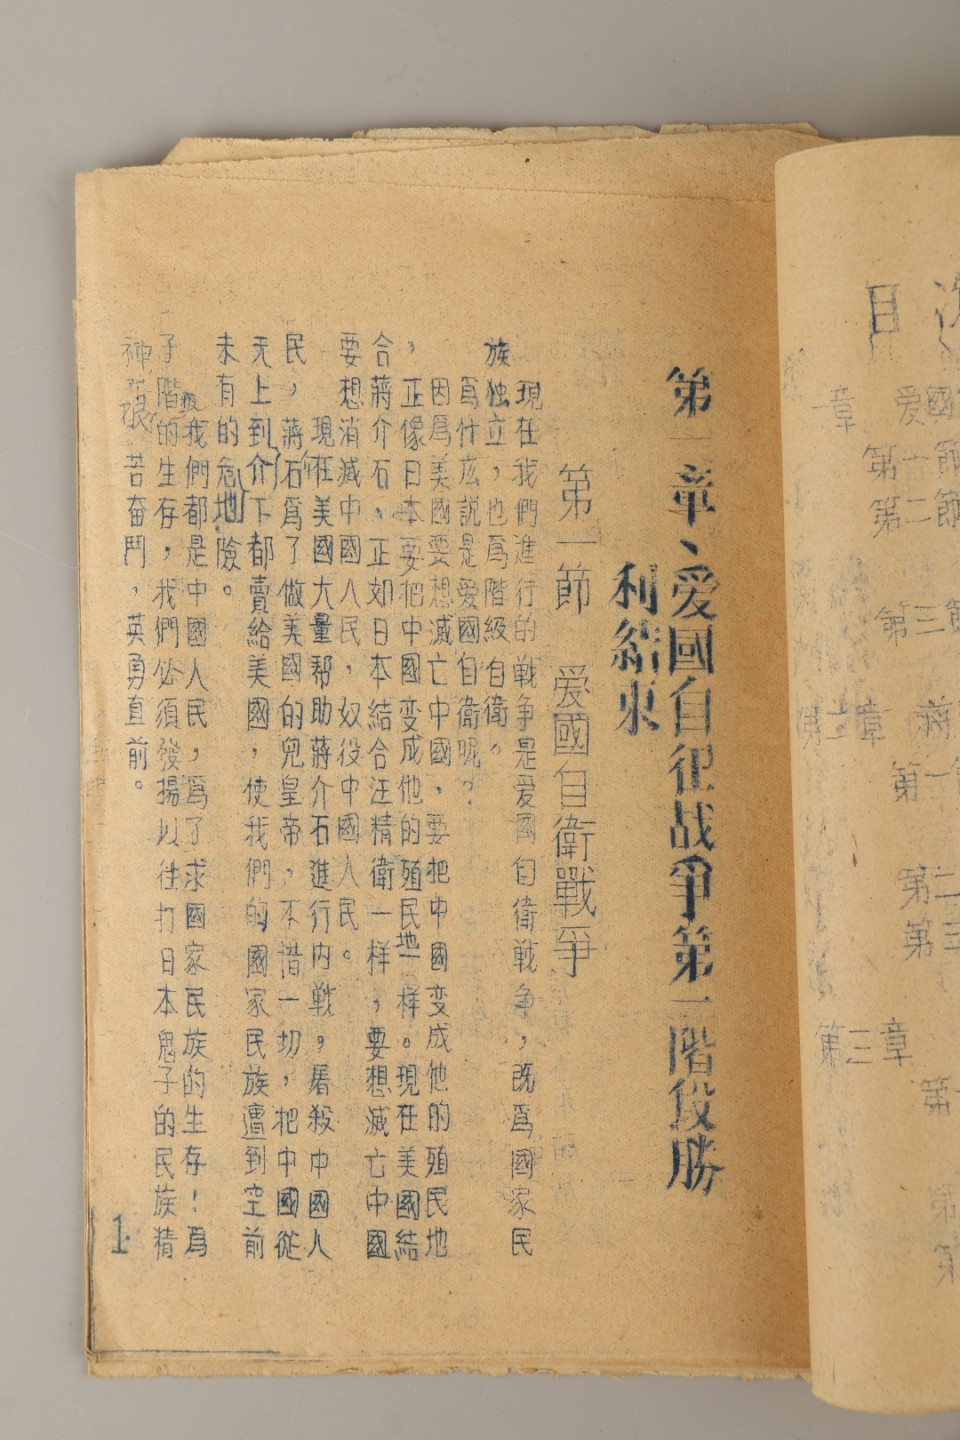 目
章 爱國
第一節
第二節
第三節
第二章
第一
第二
第三
第三章
第
第
第
第一章、爱國自衛战爭第一階段勝
利結束
第一節 爱國自衛戰爭
現在我們進行的戰争是爱國自衛戦争，既爲國家民
族独立，也爲階級自衛。
爲什庅説是爱國自衛呢？
因爲美國要想滅亡中國，要把中國变成他的殖民地
，正像日本要把中國变成他的殖民地一样。現在美國結
合蔣介石，正如日本結合汪精衛一样，要想滅亡中國
要想消滅中國人民，奴役中國人民。
現在美國大量帮助蔣介石進行内戦，屠殺中國人
民，蔣石爲了做美國的兒皇帝，不惜一切，把中國從
天上到介下都賣給美國，使我們的國家民族遭到空前
未有的危地險。
我們都是中國人民，爲了求國家民族的生存！爲
子階級的生存，我們必須發揚以往打日本鬼子的民族精
神，艰苦奮鬥，英勇直前。
1